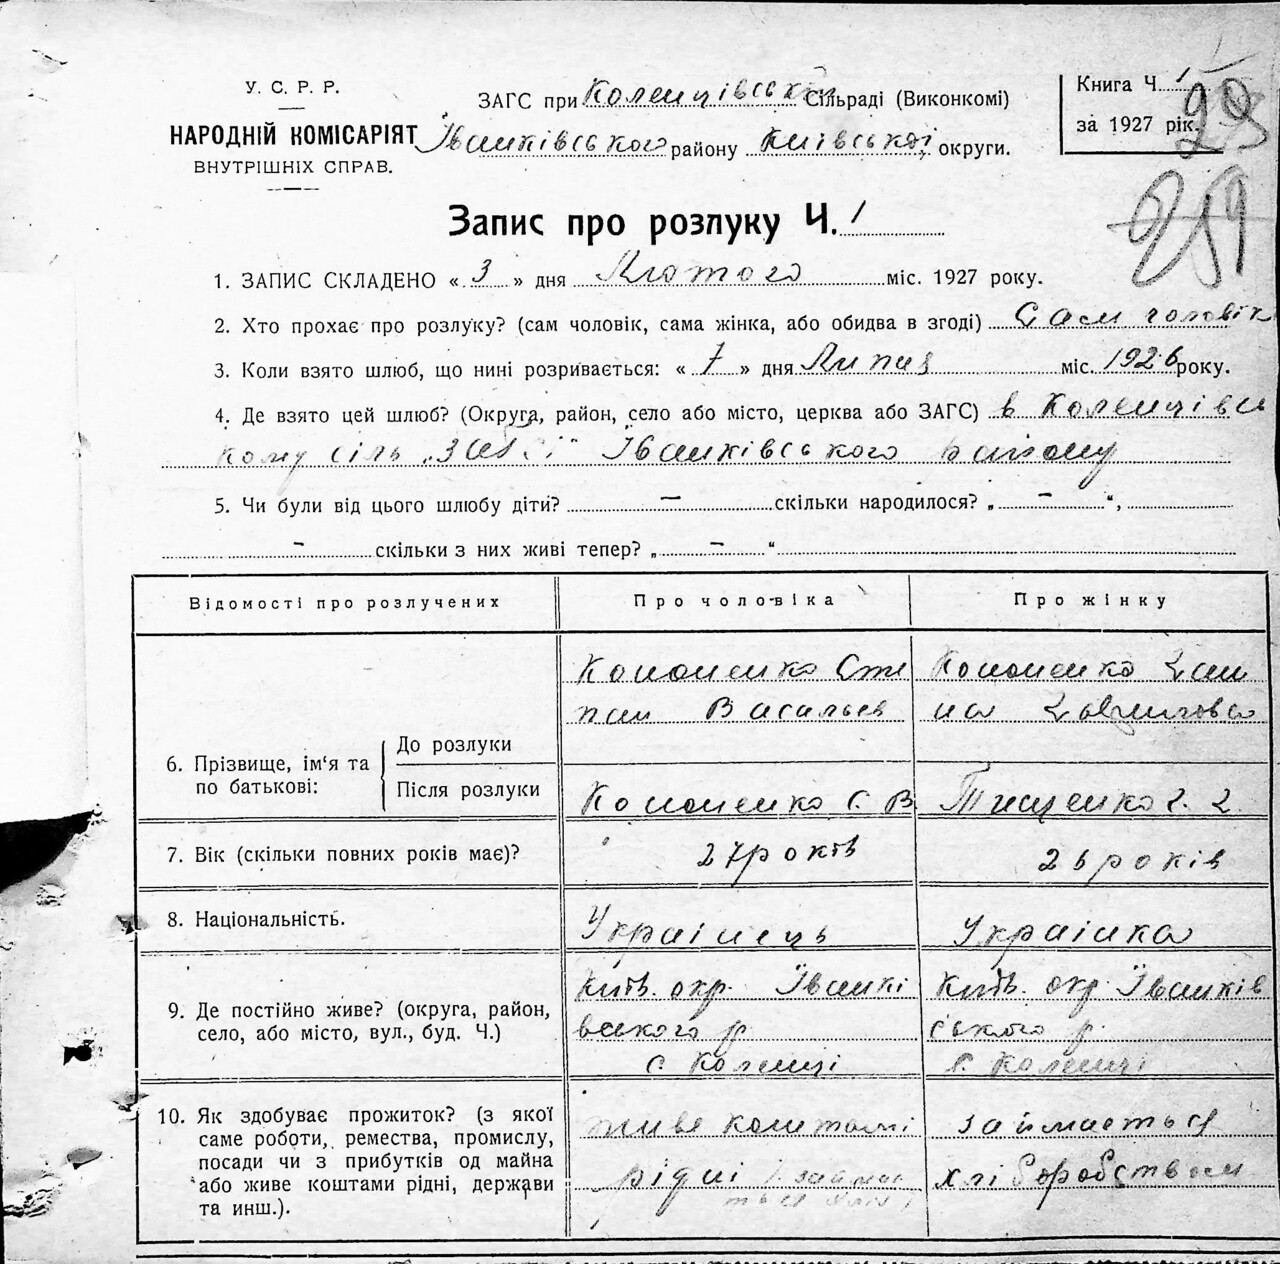 У. С. Р. Р.
НАРОДНІЙ КОМІСАРІЯТ
ВНУТРІШНІХ СПРАВ.
ЗАГС при Коленцівській Сільраді (Виконкомі)
Іванківського району Київської округи.
Книга Ч. 1
за 1927 рік.
29
259
Запис про розлуку Ч. 1
1. ЗАПИС СКЛАДЕНО « 3 » дня Лютого міс. 1927 року.
2. Хто прохає про розлуку? (сам чоловік, сама жінка, або обидва в згоді) Сам чоловік
3. Коли взято шлюб, що нині розривається: « 7 » дня Липня міс. 1926 року.
4. Де взято цей шлюб? (Округа, район, село або місто, церква або ЗАГС) в Коленцівсь
кому сіль. ЗАГСі Іванківського району
5. Чи були від цього шлюбу діти? — скільки народилося? „ — “,
— скільки з них живі тепер? „ — “
Відомості про розлучених
Про чоловіка
Про жінку
6. Прізвище, ім'я та по батькові:
До розлуки
Кононенко Сте
пан Васильев
Кононенко Ган
на Гаврилова
Після розлуки
Кононенко С. В
Тищенко Г. Г.
7. Вік (скільки повних років має)?
27 років
26 років
8. Національність.
Українець
Українка
9. Де постійно живе? (округа, район,
село, або місто, вул., буд. Ч.)
Київ. окр. Іванкі
вського р
с. Коленці
Київ. окр. Іванків
ського р.
с. Коленці
10. Як здобуває прожиток? (з якої
саме роботи, ремества, промислу,
посади чи з прибутків од майна
або живе коштами рідні, держави
та инш.).
живе коштами
рідні
займається
хліборобством